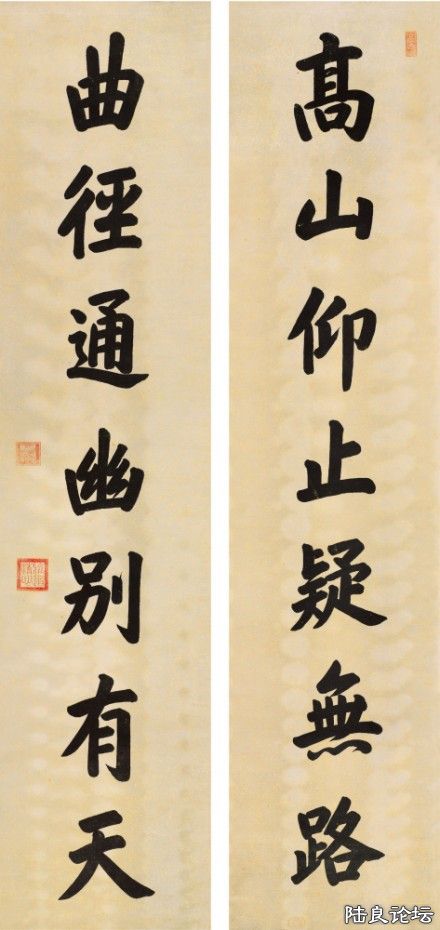 高山仰止疑無路
曲徑通幽別有天
陆良论坛